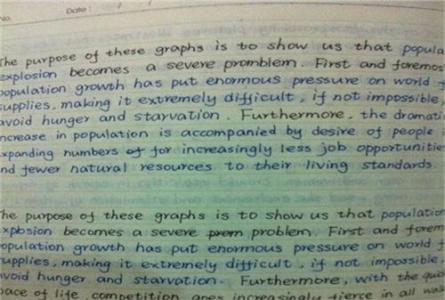 No.
Date:
The purpose of these graphs is to show us that popula
explosion becomes a severe promblem. First and foremos
population growth has put enormous pressure on world f
supplies, making it extremely difficult, if not impossible
avoid hunger and starvation. Furthermore, the dramati
increase in population is accompanied by desire of people
expanding numbers of for increasingly less job opportunitie
and fewer natural resources to their living standards.
The purpose of these graphs is to show us that population
explosion becomes a severe prem problem. First and forem
population growth has put enormous pressure on world f
supplies, making it extremely difficult, if not impossible.
avoid hunger and starvation. Furthermore, with the quic
pace of life, competition goes increasingly fierce in all wal